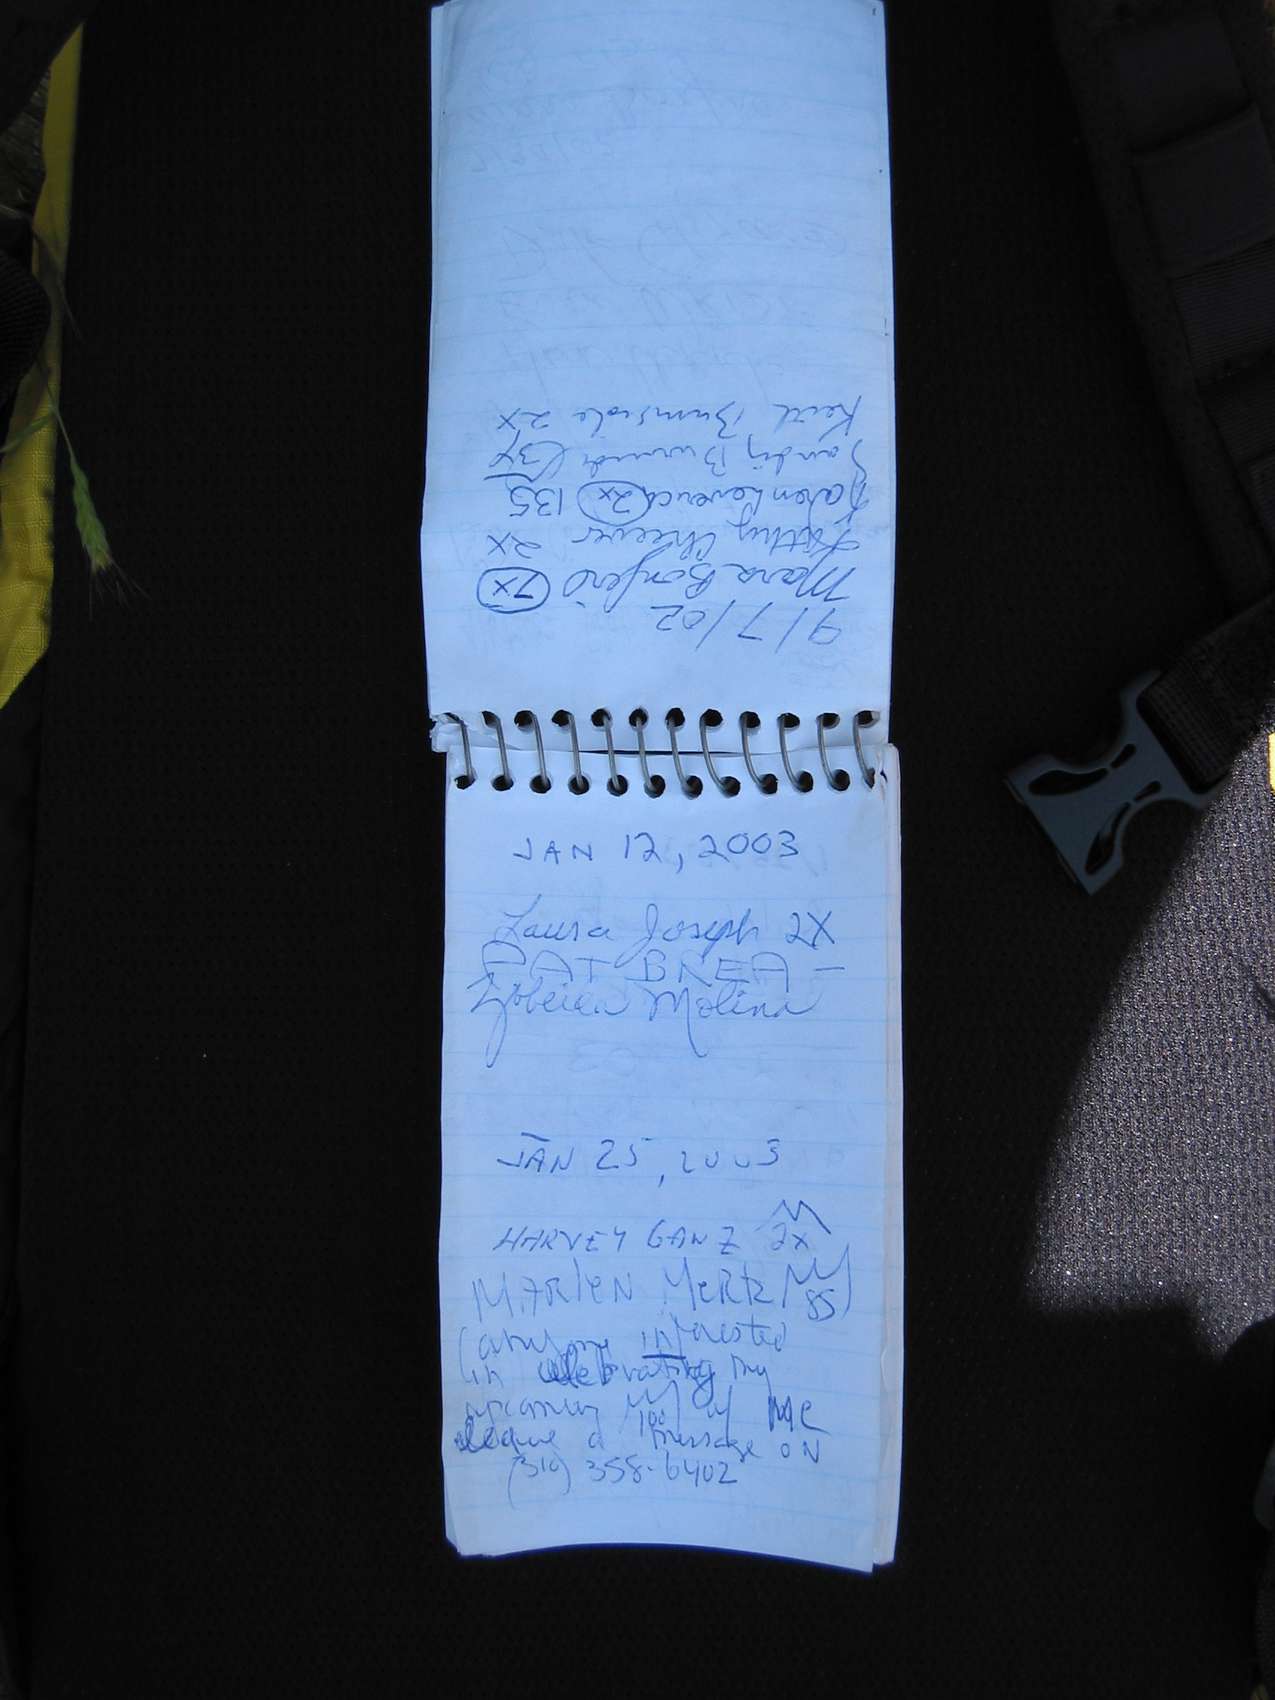 9/7/02
Mara Bonfero 7x
Kathy Cheever 2x
Karen Leverich 2x 135
Sandy Burnside 3x
Keith Burnside 2x
JAN 12, 2003
Laura Joseph 2X
PAT BREA -
Zobeida Molina
JAN 25, 2003
HARVEY GANZ 2x
MARleN MertZ 85
(anyone interested
in celebrating my
upcoming 100) of me
leave a message ON
(310) 358-6402